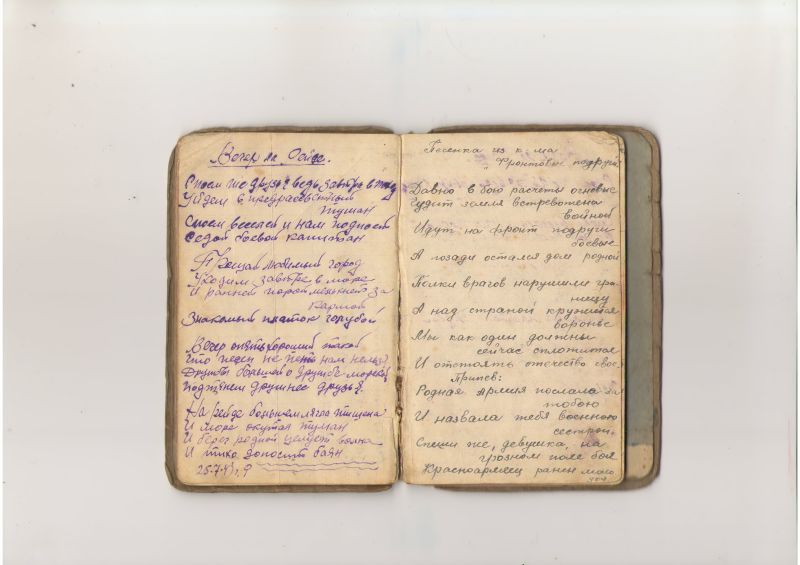 Вечер на Рейде.
Споем же друзья ведь завтра в
Уйдем в предрассветный
туман
Споем веселей и нам подпоет
Седой боевой капитан
Прощай любимый город
Уходим завтра в море
И ранней порой мелькнет за
кармой
Знакомый платок голубой
Вечер опять хороший такой
Что песен не петь нам нельзя
Дружбе большой о дружбе морской
подтянем дружнее друзья.
На Рейде большом легла тишина
И море окутал туман
И берег родной целует волна
И тихо доносит баян
Песенка из к-ма
"Фронтовые подруги"
Давно в бою расчеты огневые
Гудит земля встревожена
войной
Идут на фронт подруги
боевые
А позади остался дом родной
Полки врагов нарушили гра-
ницу
А над страной кружится
воронье
Мы как один должны
сейчас сплотится
И отстоять отечество свое
Припев:
Родная армия послала за
тобою
И назвала тебя военною
сестрой.
Спеши же, девушка, на
грозном поле боя
Красноармеец ранен